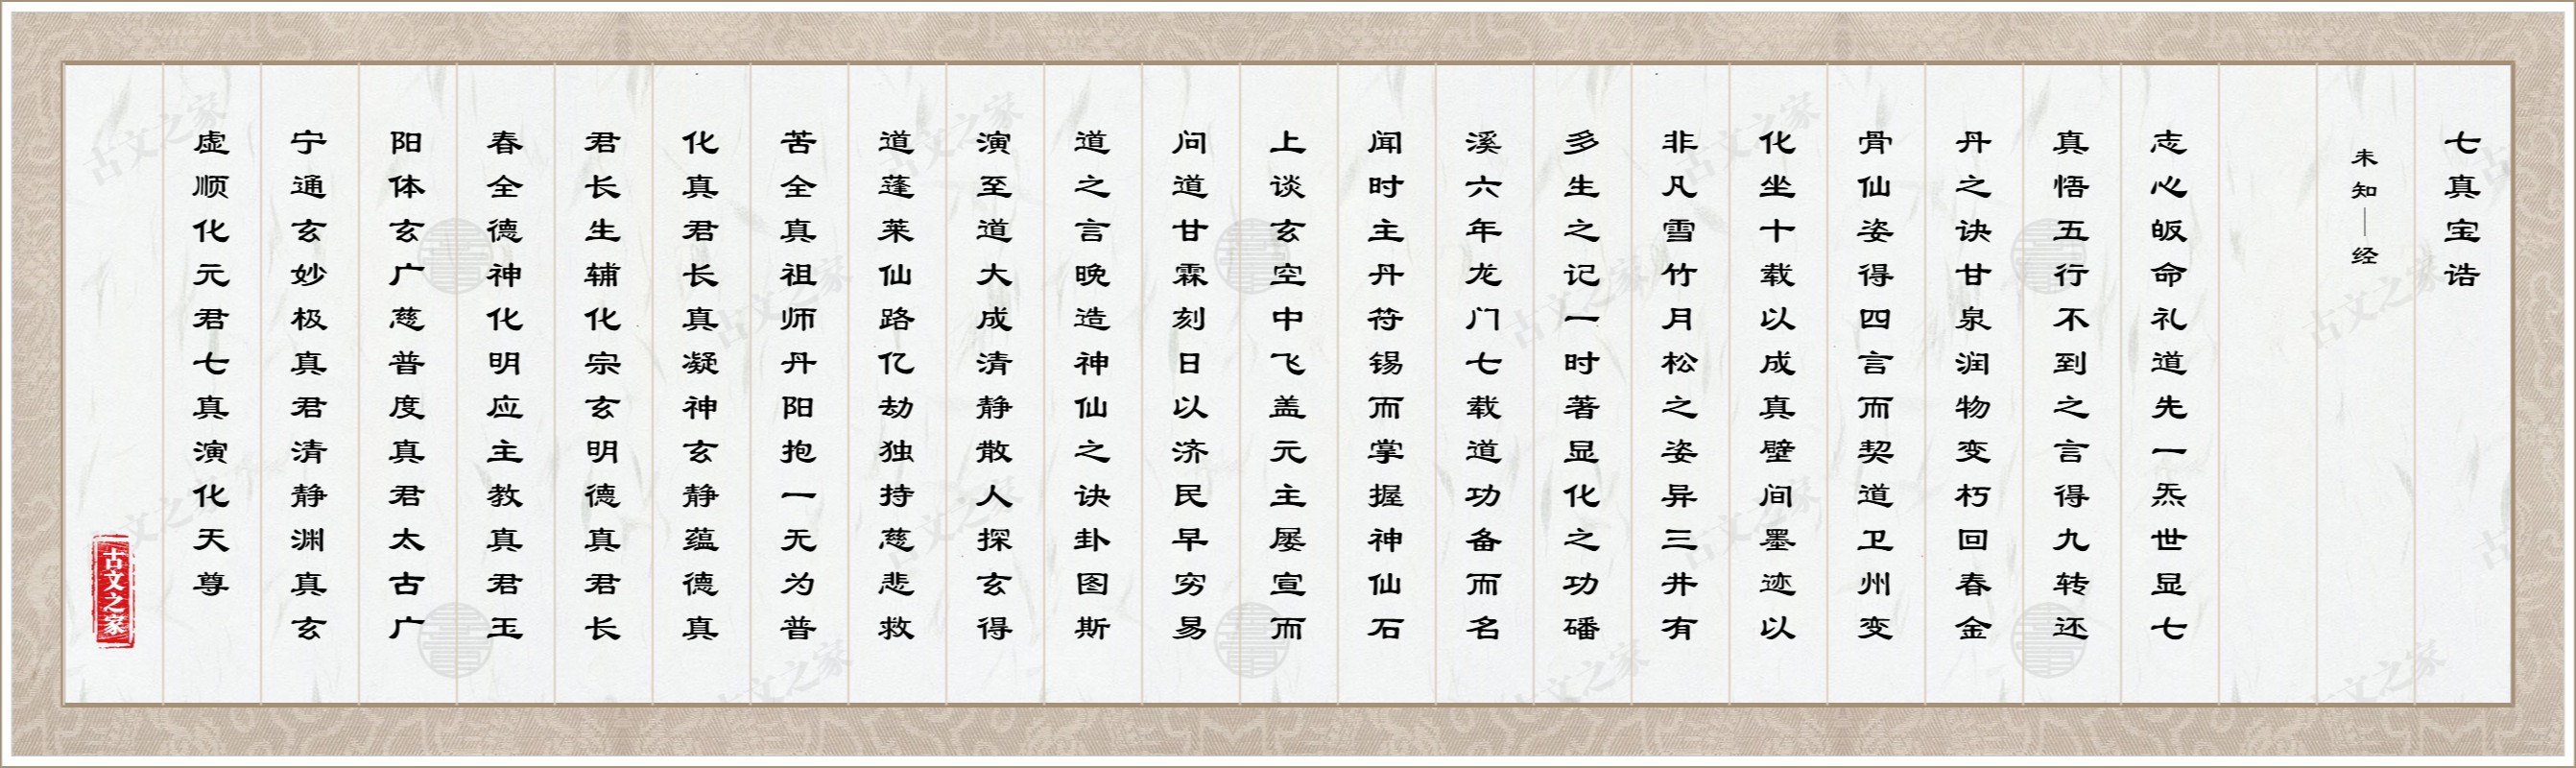 七真宝诰
未知｜经
志心皈命礼道先一炁世显七
真悟五行不到之言得九转还
丹之诀甘泉润物变朽回春金
骨仙姿得四言而契道卫州变
化坐十载以成真壁间墨迹以
非凡雪竹月松之姿异三井有
多生之记一时著显化之功磻
溪六年龙门七载道功备而名
闻时主丹符锡而掌握神仙石
上谈玄空中飞盖元主屡宣而
问道甘霖刻日以济民早穷易
道之言晚造神仙之诀卦图斯
演至道大成清静散人探玄得
道蓬莱仙路亿劫独持慈悲救
苦全真祖师丹阳抱一无为普
化真君长真凝神玄静蕴德真
君长生辅化宗玄明德真君长
春全德神化明应主教真君玉
阳体玄广慈普度真君太古广
宁通玄妙极真君清静渊真玄
虚顺化元君七真演化天尊
古文之家